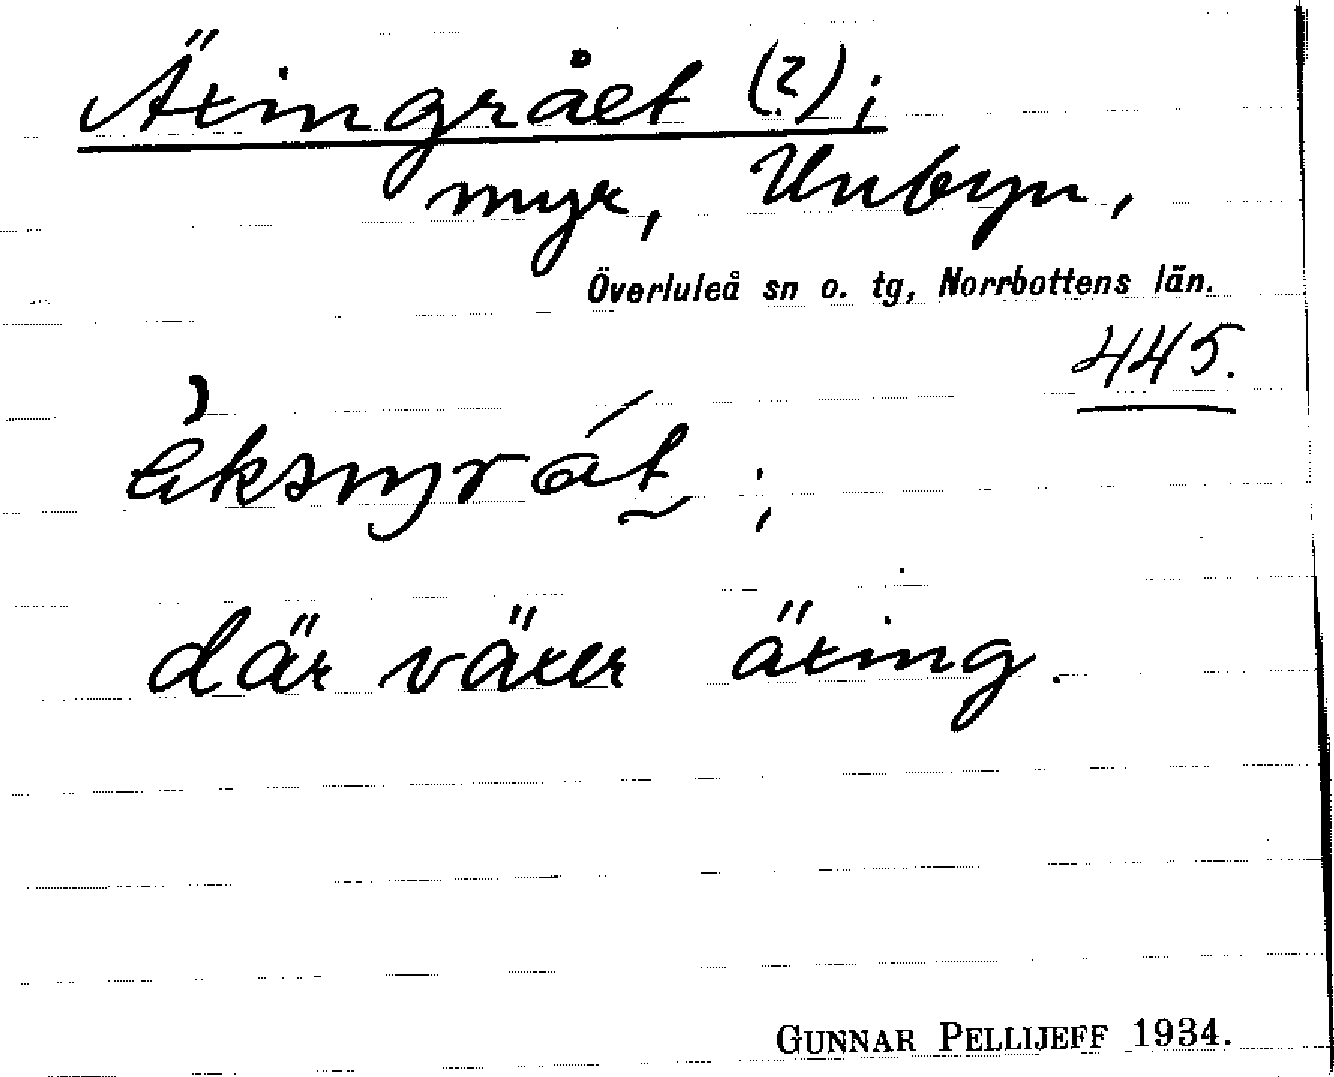 Äxingrået (?);
myr, Unbyn,
Överluleå sn o. tg, Norrbottens län.
445.
där växer äxing.
GUNNAR PELLIJEFF 1934.